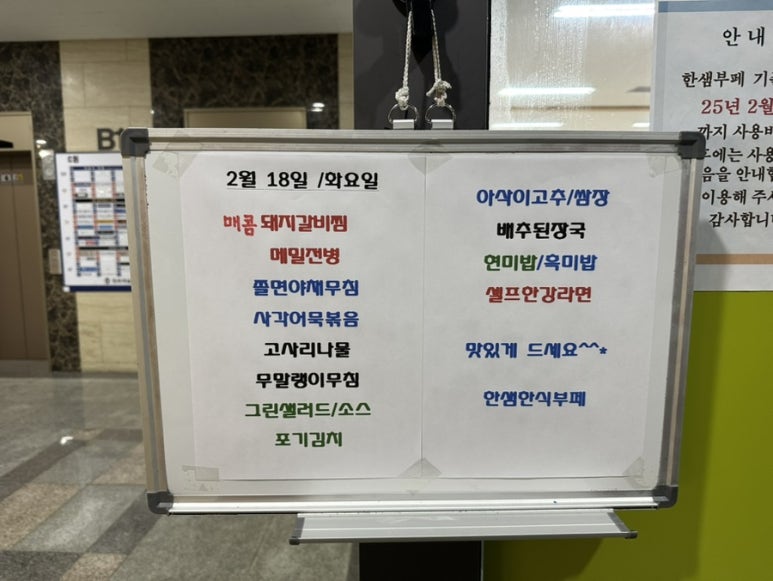 2월 18일 /화요일
매콤 돼지갈비찜
메밀전병
쫄면야채무침
사각어묵볶음
고사리나물
무말랭이무침
그린샐러드/소스
포기김치
아삭이고추/쌈장
배추된장국
현미밥/흑미밥
셀프한강라면
맛있게 드세요^^*
한샘한식부페
안내
한샘부페
25년 2월
까지
이용해
감사합니